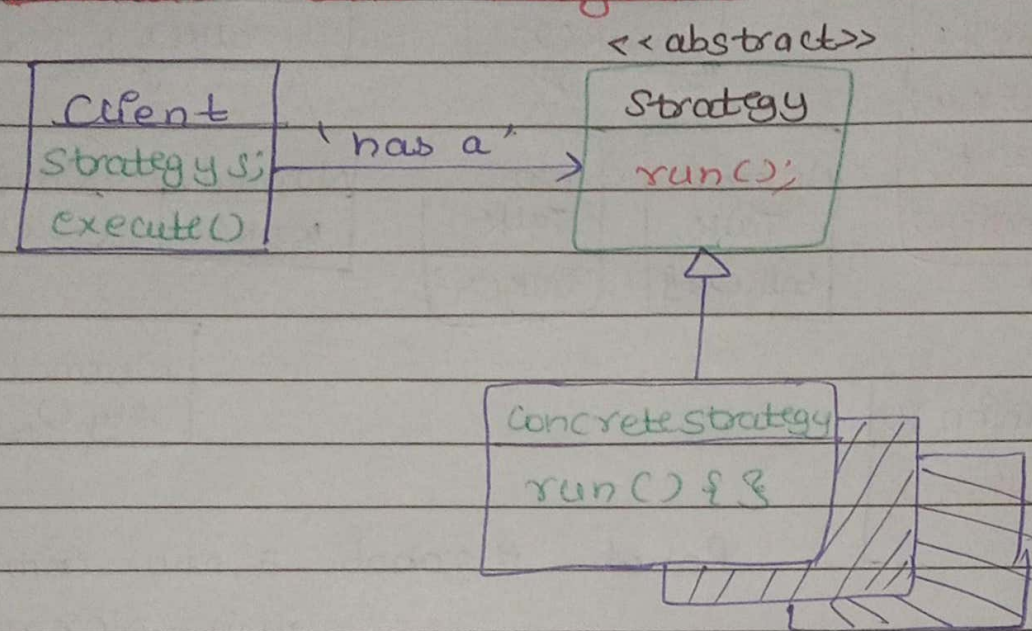 <<abstract>>
Client
Strategy s;
execute()
'has a'
Strategy
run();
Concrete Strategy
run() { }